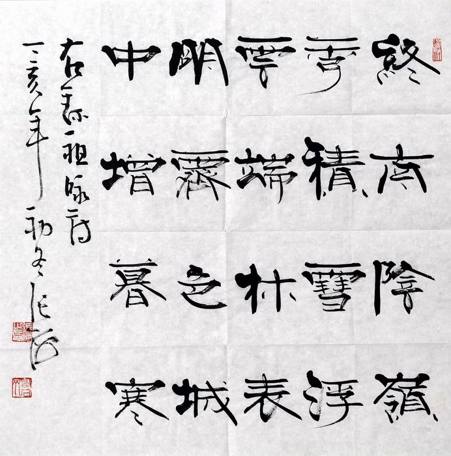 終南陰嶺
秀積雪浮
雲端林表
明霽色城
中增暮寒
右录祖詠詩
丁亥年初冬張